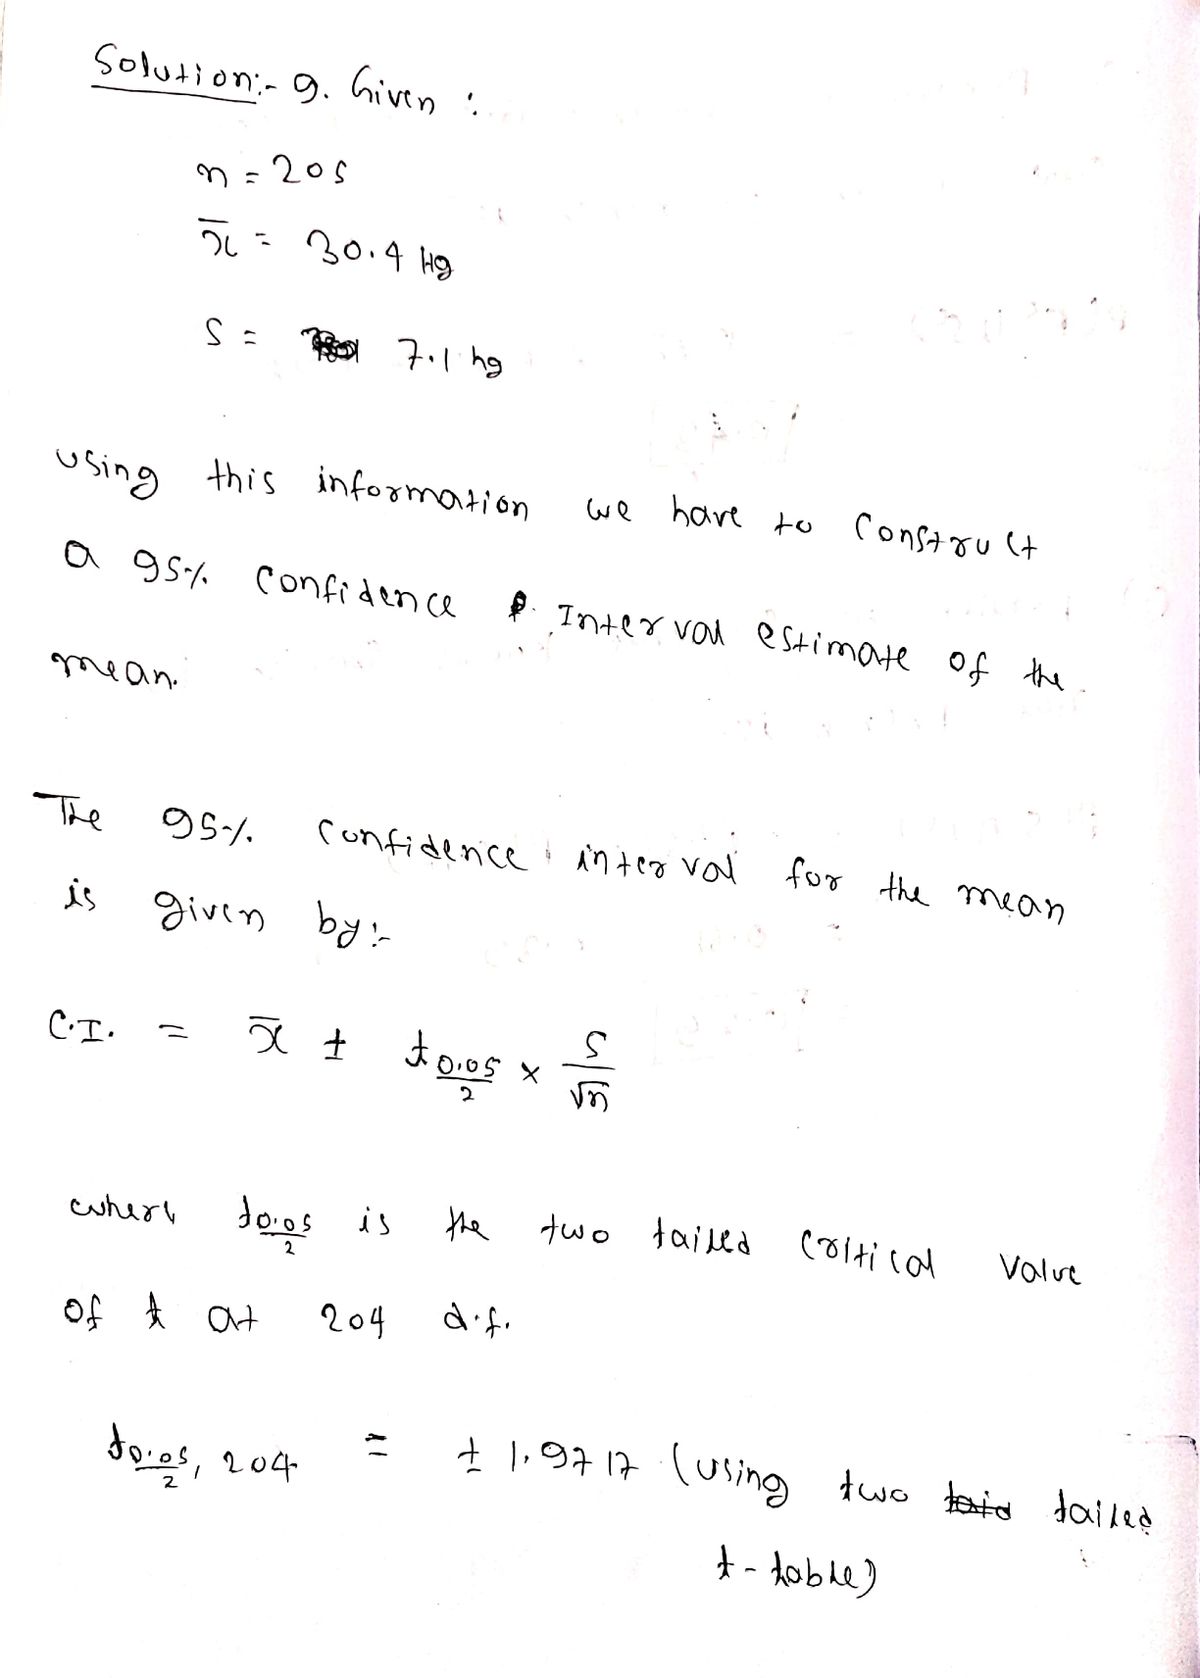 Solution:- 9. Given :
n = 205
x̄ = 30.4 Hg
S = 7.1 hg
using this information we have to Construct
a 95% Confidence Interval estimate of the
mean.
The 95% Confidence interval for the mean
is given by:-
C.I. = x̄ ± t_{0.05/2} × S/√n
where t_{0.05/2} is the two tailed Critical Value
of t at 204 d.f.
t_{0.05/2}, 204 = ± 1.9717 (using two taid tailed
t-table)